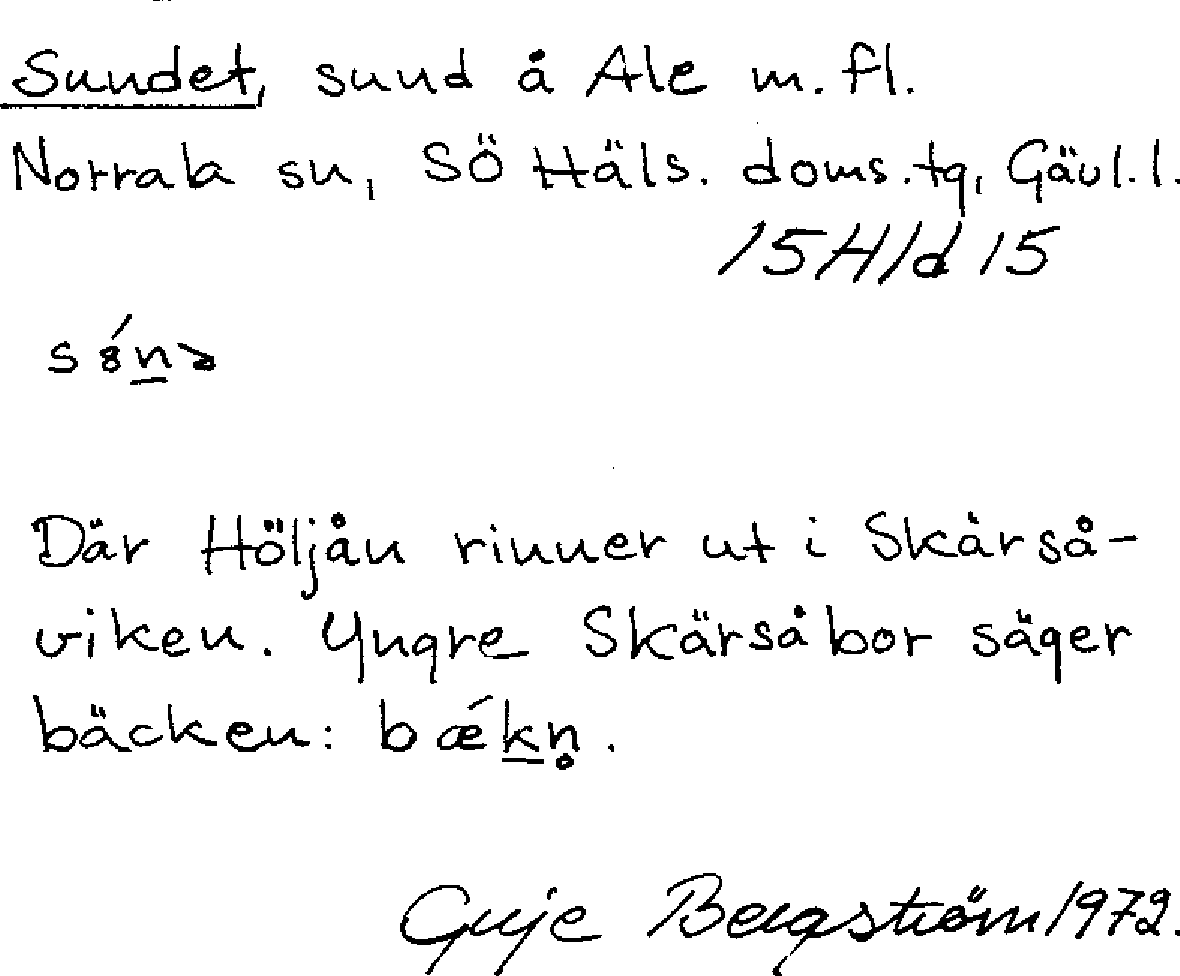 Sundet, sund å Ale m. fl.
Norrala sn, SÖ Häls. doms.tg, Gävl.l.
15H1d 15
sȣ́n̠ə
Där Höljån rinner ut i Skärså-
viken. Yngre Skärsåbor säger
bäcken: bǽk̠n̥.
Guje Bergström 1972.